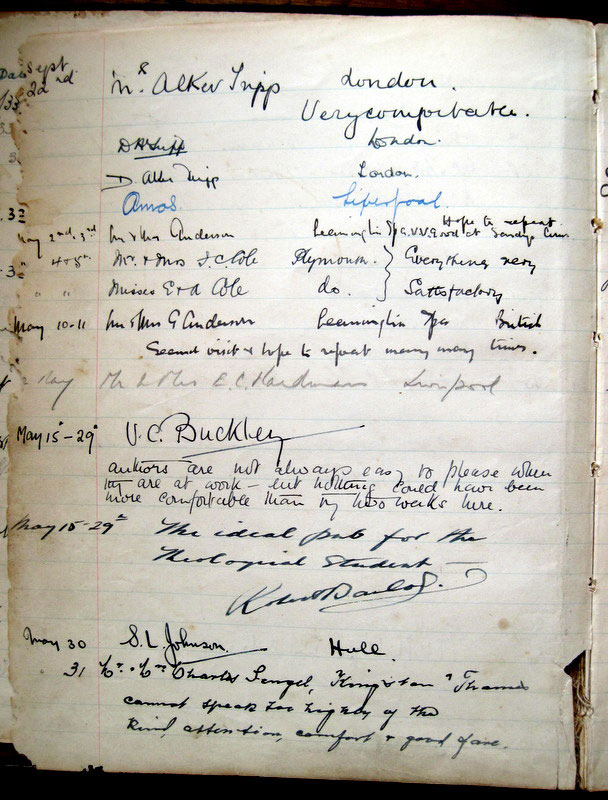 Date Sept
2d rd
Mr Alker Tripp London.
Very comfortable.
D H Tripp London.
D Alker Tripp London.
Amos. Liverpool.
May 2nd, 3rd Mr & Mrs Anderson Leamington Spa. V.V. Good at Hope to repeat
" 4 & 5th Mr. & Mrs J. C. Cole Plymouth. Everything very
" " Misses E & A Cole do. Satisfactory
May 10-11 Mr & Mrs G Anderson Leamington Spa British
Second visit & hope to repeat many many times.
May Mr & Mrs E. C. Hardman Liverpool
May 15-29 V. C. Buckley
authors are not always easy to please when
they are at work – but nothing could have been
more comfortable than my two weeks here.
May 15-29 The ideal pub for the
Theological Student —
May 30 S. L. Johnson. Hull.
31 Mr. & Mrs Charles Kingston Thames
cannot speak too highly of the
kind, attention, comfort & good fare.